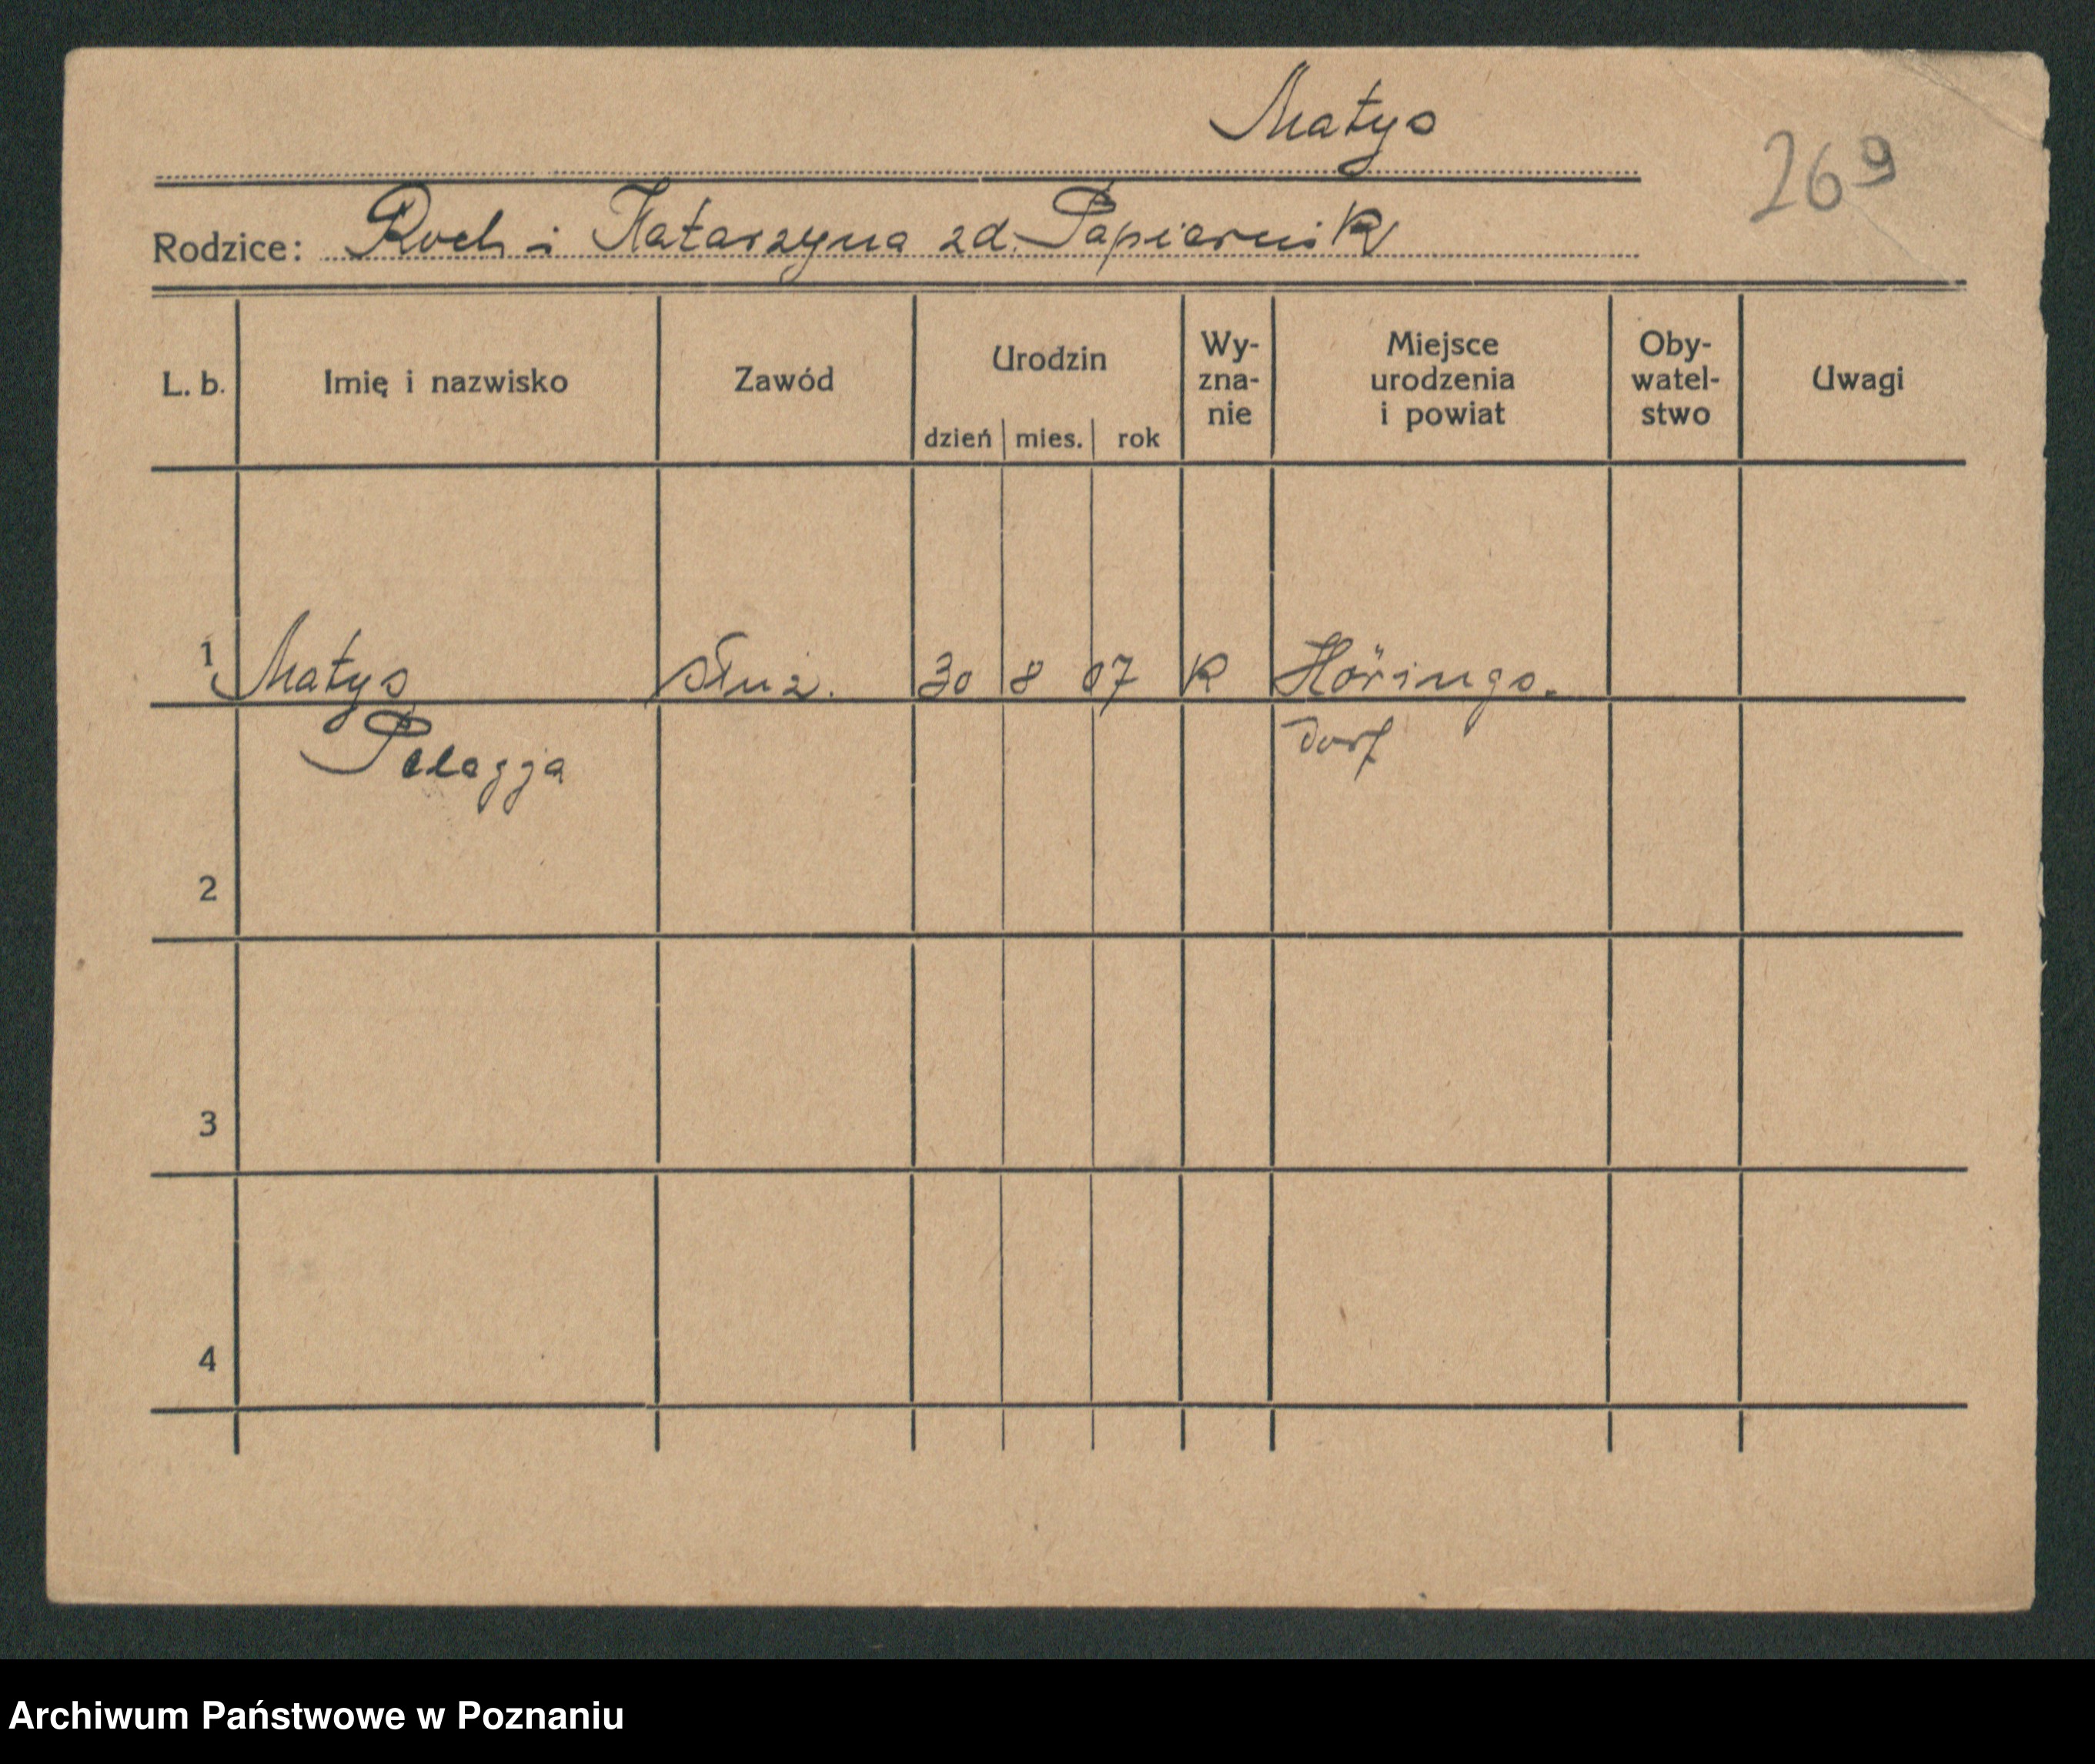 Matys
269
Rodzice: Roch i Katarzyna zd. Papiernik
L. b. Imię i nazwisko Zawód Urodzin dzień mies. rok Wy-zna-nie Miejsce urodzenia i powiat Oby-watel-stwo Uwagi
1 Matys służ. 30 8 07 K Hörings.
Pelagja dorf
2
3
4
Archiwum Państwowe w Poznaniu